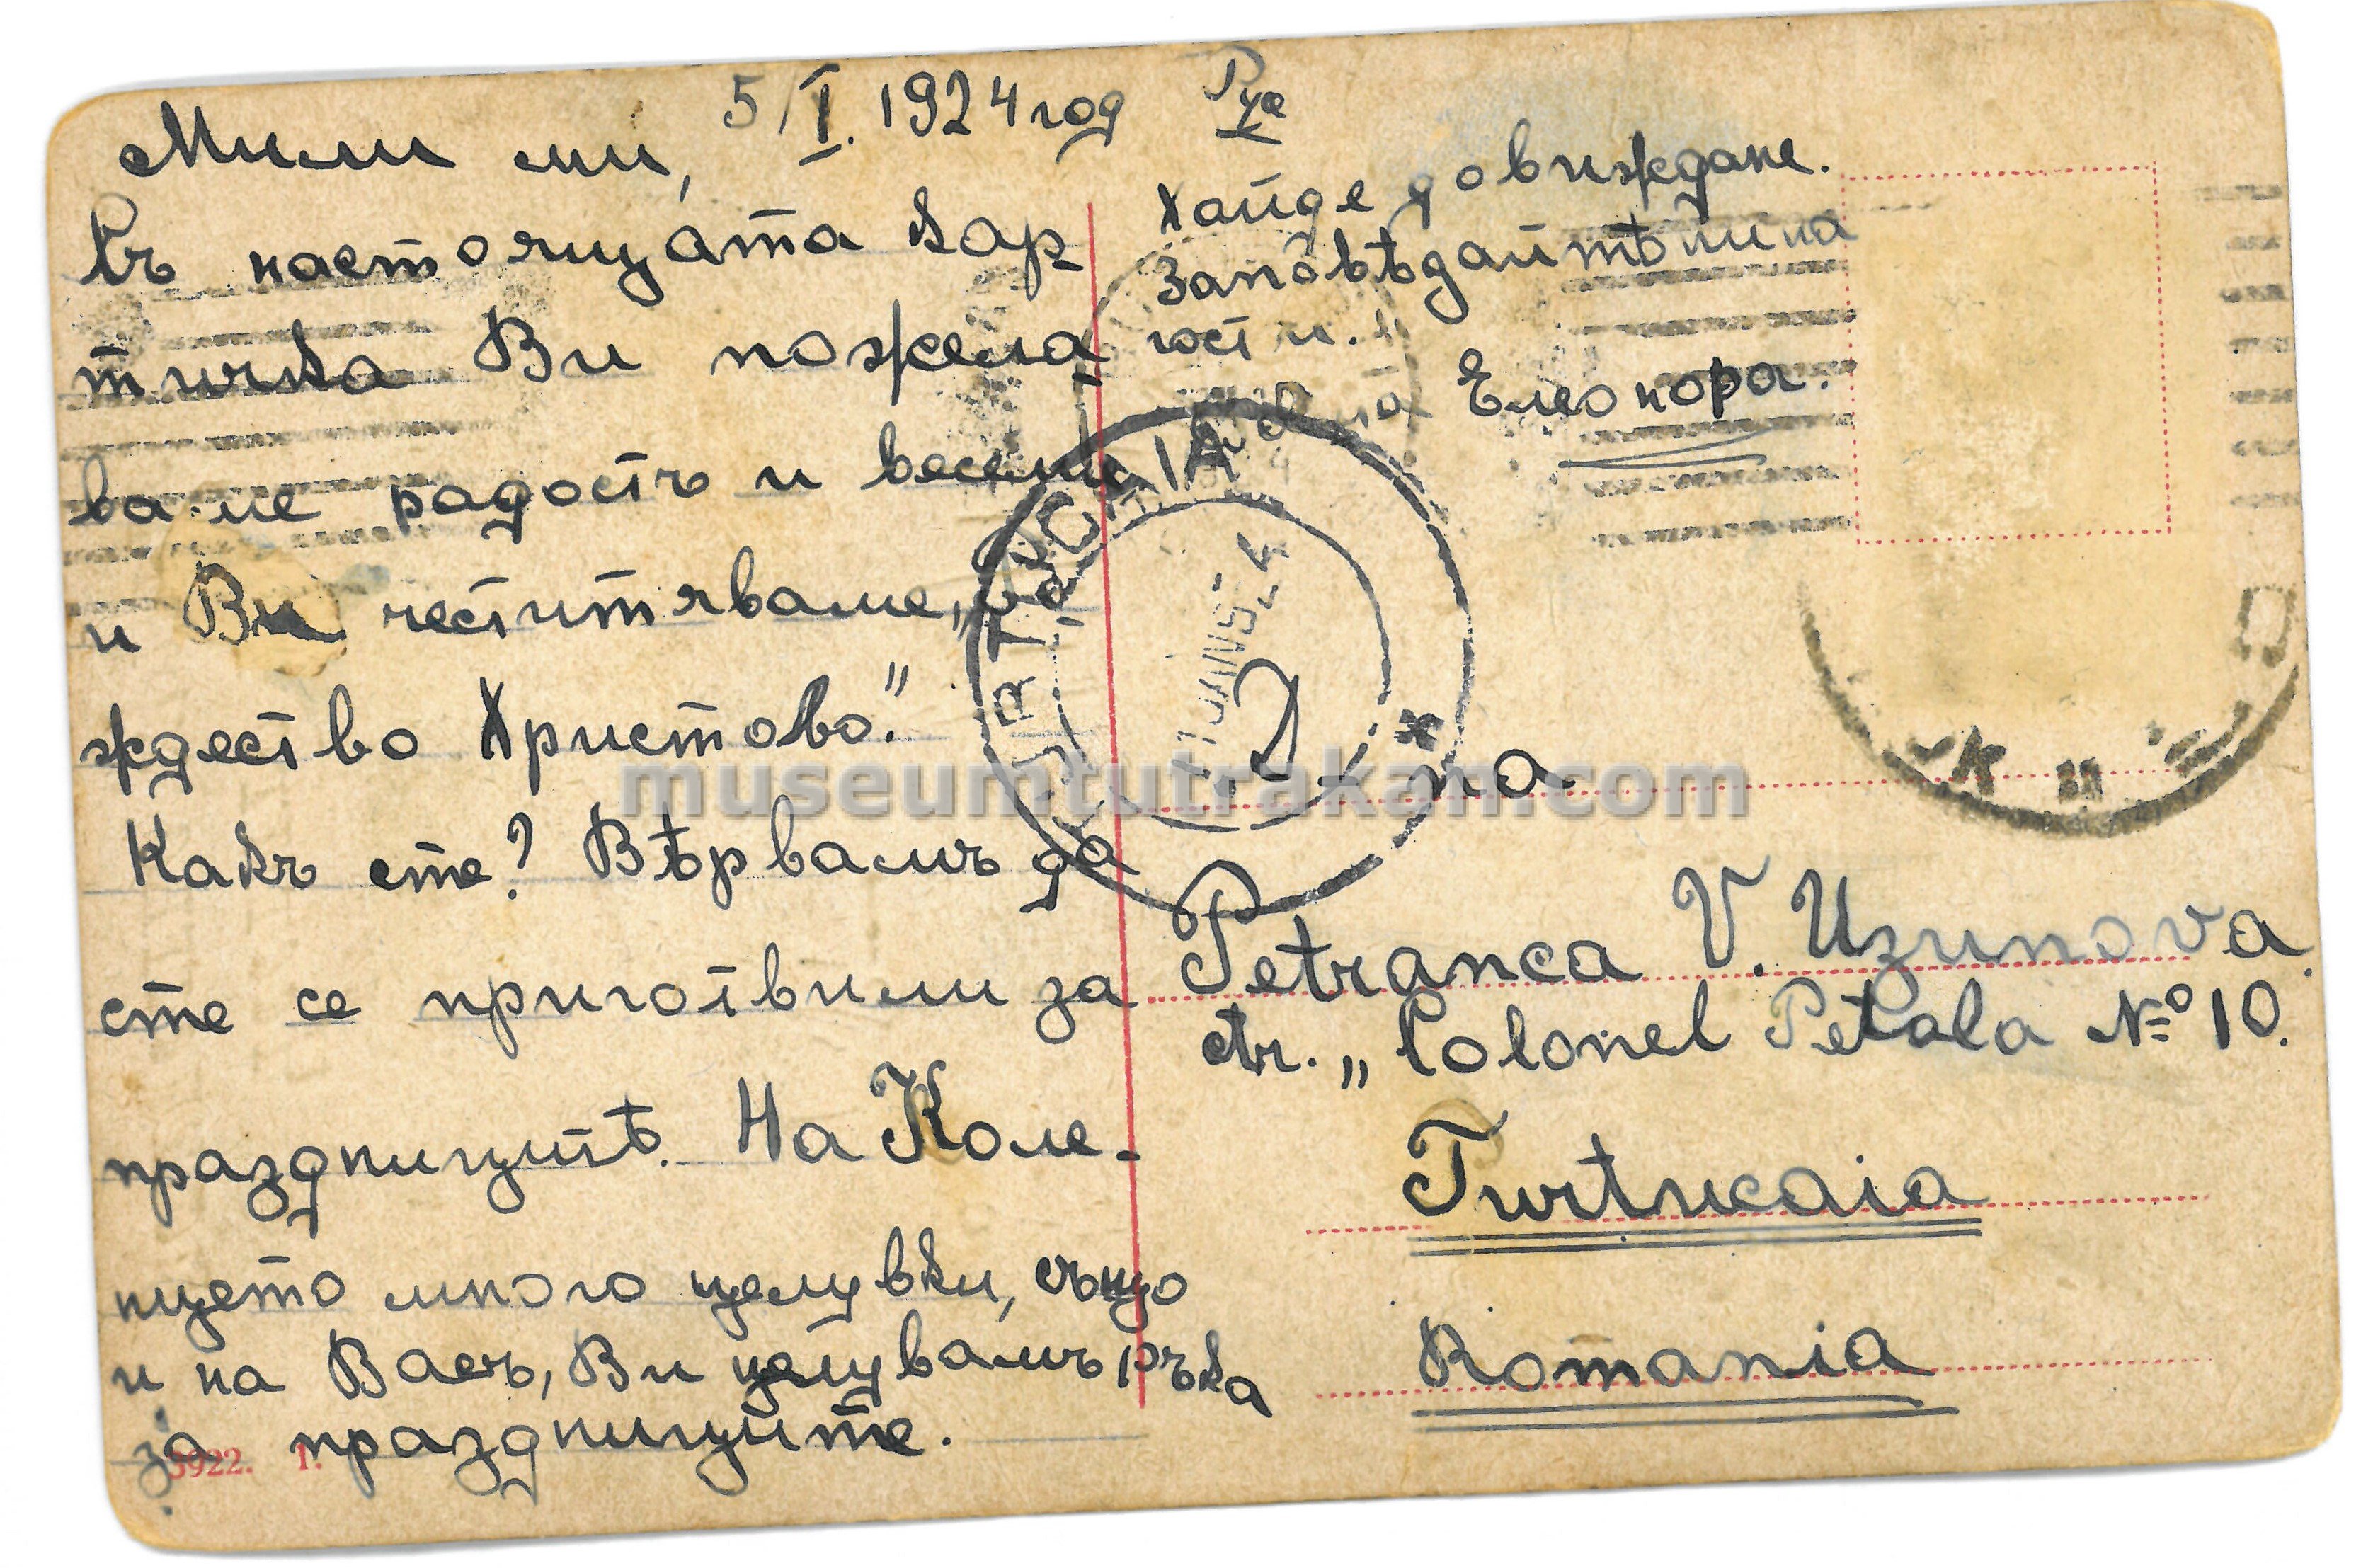 5/I. 1924 год Русе
Мили ми,
Въ настоящата кар-
тичка Ви пожела-
ваме радость и весели
и Ви честитяваме „Ро-
ждество Христово.“
Какъ сте? Вѣрвамъ да
сте се приготвили за
праздницитѣ. На Коле-
нцето много целувки, също
и на Васъ, Ви целувамъ ръка
за праздниците.
Хайде довиждане.
Заповѣдайтѣ ни на
гости.
Елеонора.
TURTUCAIA
IANR 24
2
на
Petranca V. Uzunova
str. „Colonel Petala № 10.
Turtucaia
Romania
3922. 1.
museumtutrakan.com